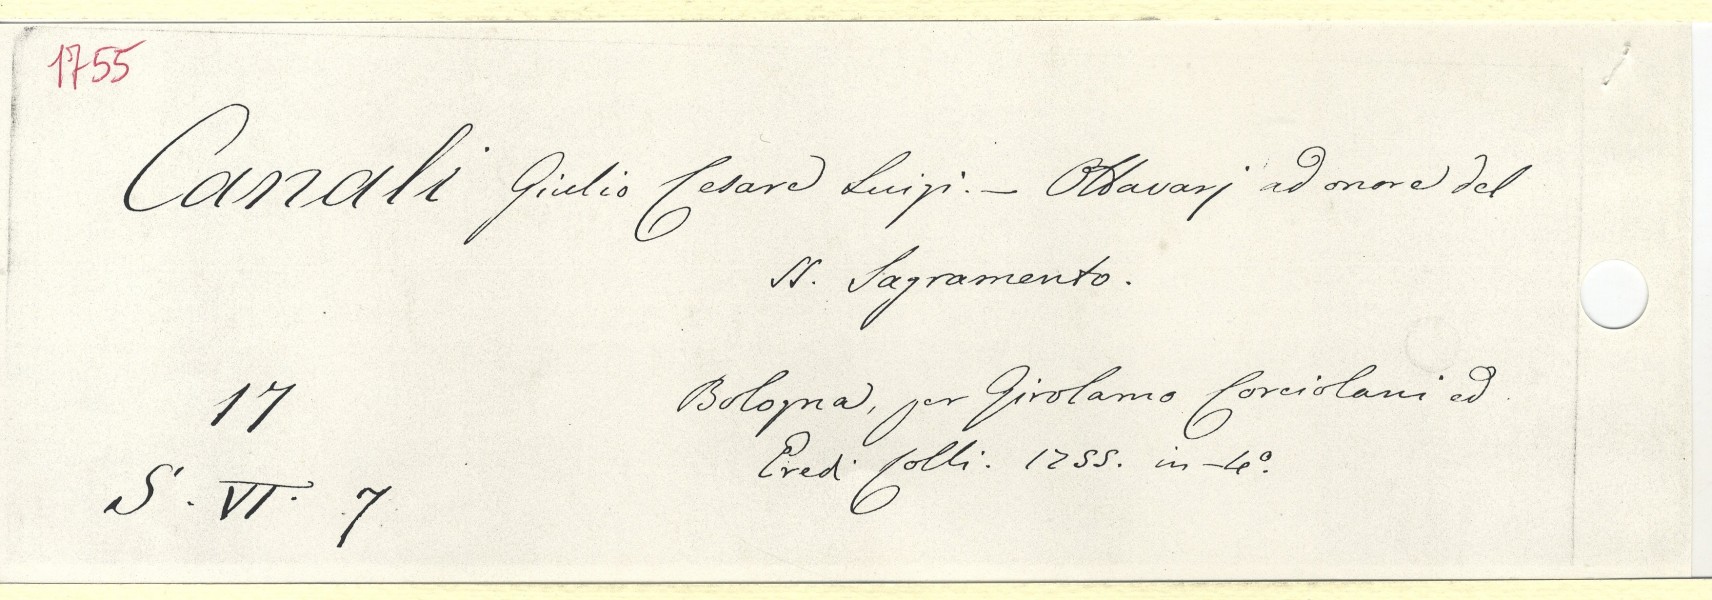 1755
Canali Giulio Cesare Luigi. — Ottavarj ad onore del
SS. Sagramento.
17
Bologna, per Girolamo Corciolani ed
Eredi Colli. 1755. in-4°.
S. VI. 7